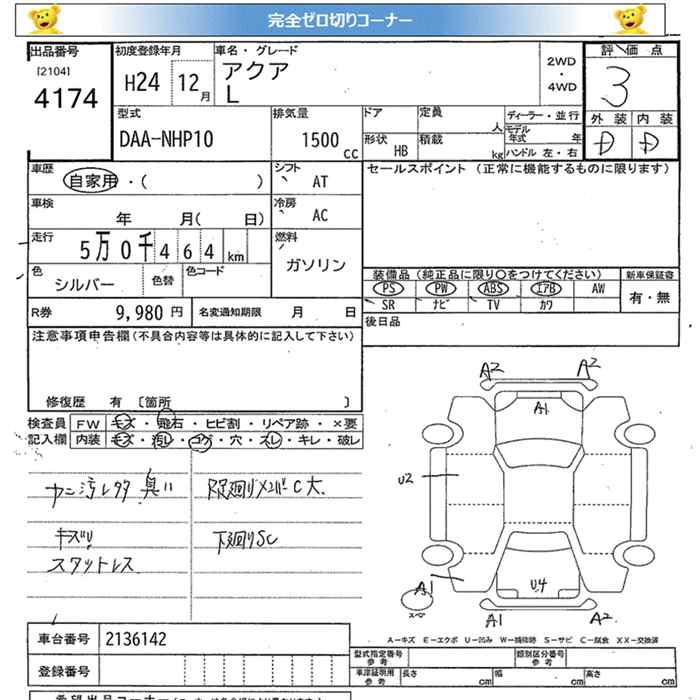 完全ゼロ切りコーナー
出品番号 初度登録年月 車名・グレード 評価点
[2104] 4174 H24 12月 アクア L 2WD・4WD 3
型式 排気量 ドア 定員 人 ディーラー・並行 外装 内装
DAA-NHP10 1500cc 形状 HB 積載 kg モデル年式 年 ハンドル 左・右 D D
車歴 自家用・( ) シフト AT セールスポイント (正常に機能するものに限ります)
車検 年 月( 日) 冷房 AC
走行 5万0千464km 燃料 ガソリン
色 シルバー 色替 色コード
装備品 (純正品に限り○をつけてください) 新車保証書
PS PW ABS エアB AW 有・無
SR ナビ TV カワ
R券 9,980円 名変通知期限 月 日
後日品
注意事項申告欄(不具合内容等は具体的に記入して下さい)
修復歴 有 [箇所 ]
検査員記入欄 FW キズ・飛石・ヒビ割・リペア跡・×要
内装 キズ・汚レ・コゲ・穴・スレ・キレ・破レ
臭い
キズ
スタットレス
下廻りSC
A2 A2
A1
U2
A1 U4
スペア A1 A2
A-キズ E-エクボ U-凹み W-補修跡 S-サビ C-腐食 XX-交換済
車台番号 2136142
登録番号
型式指定番号 参考 類別区分番号 参考
車庫証明用 参考 長さ cm 幅 cm 高さ cm